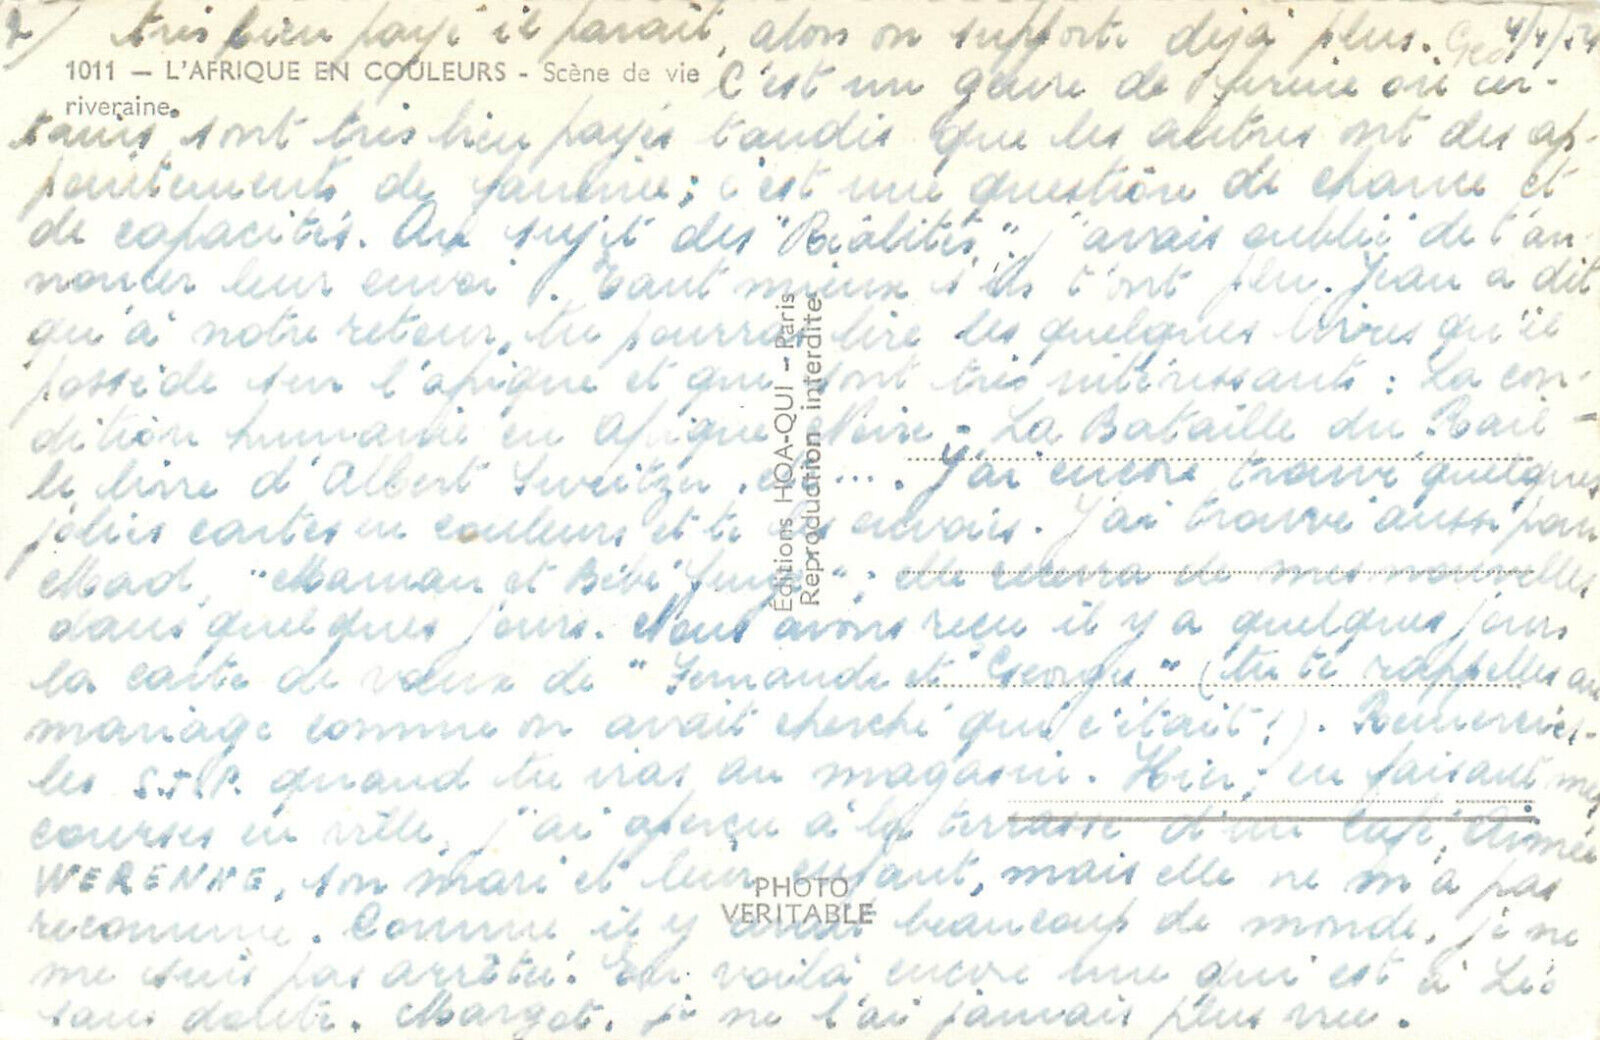 2/ très bien payé il parait, alors on supporte déjà plus. 4/1/54
1011 — L'AFRIQUE EN COULEURS - Scène de vie
riveraine.
C'est un genre de firme où cer-
tains sont très bien payés tandis que les autres ont des ap-
pointements de famine; c'est une question de chance et
de capacités. Au sujet des "Réalités", j'avais oublié de t'an-
noncer leur envoi. Tant mieux s'ils t'ont plu. Jean a dit
qu'à notre retour, tu pourras lire les quelques livres qu'il
possède sur l'afrique et que sont très intéressants : La con-
dition humaine en Afrique Noire - La Bataille du Rail -
le livre d'Albert Sweitzer, etc.... J'ai encore trouvé quelques
jolies cartes en couleurs et te les envois. J'ai trouvé aussi pour
Mad, "Maman et Bébé Singe"; elle recevra de mes nouvelles
dans quelques jours. Nous avons reçu il y a quelques jours
la carte de vœux de "Fernande et Georges" (tu te rappelles au
mariage comme on avait cherché qui c'était!). Remercies-
les S.T.P. quand tu iras au magasin. Hier, en faisant mes
courses en ville, j'ai aperçu à la terrasse d'un café, Aimée
WERENNE, son mari et leur enfant, mais elle ne m'a pas
reconnue. Comme il y avait beaucoup de monde, je ne
me suis pas arrêté. En voilà encore une qui est à Léo
sans doute. Margot, je ne l'ai jamais plus vue.
Éditions HOA-QUI - Paris
Reproduction interdite
PHOTO
VERITABLE